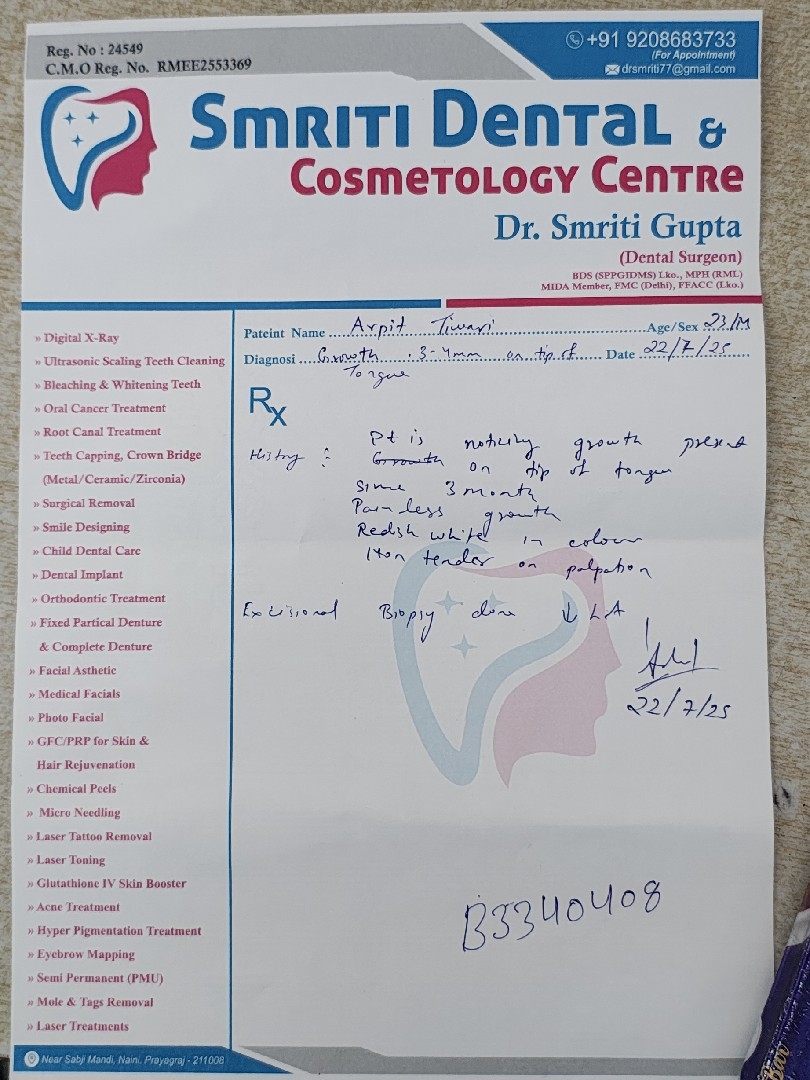 Reg. No : 24549
C.M.O Reg. No. RMEE2553369
+91 9208683733
(For Appointment)
drsmriti77@gmail.com
Smriti Dental &
Cosmetology Centre
Dr. Smriti Gupta
(Dental Surgeon)
BDS (SPPGIDMS) Lko., MPH (RML)
MIDA Member, FMC (Delhi), FFACC (Lko.)
Pateint Name Arpit Tiwari Age/Sex 23/M
Diagnosi Growth 3-4mm on tip of Date 22/7/25
Tongue
Rx
History : Pt is noticing growth present
Growth on tip of tongue
Since 3 month
Pain less growth
Redish white in colour
Non tender on palpation
Excisional Biopsy done ↓ LA
22/7/25
B3340408
» Digital X-Ray
» Ultrasonic Scaling Teeth Cleaning
» Bleaching & Whitening Teeth
» Oral Cancer Treatment
» Root Canal Treatment
» Teeth Capping, Crown Bridge
(Metal/Ceramic/Zirconia)
» Surgical Removal
» Smile Designing
» Child Dental Care
» Dental Implant
» Orthodontic Treatment
» Fixed Partical Denture
& Complete Denture
» Facial Asthetic
» Medical Facials
» Photo Facial
» GFC/PRP for Skin &
Hair Rejuvenation
» Chemical Peels
» Micro Needling
» Laser Tattoo Removal
» Laser Toning
» Glutathione IV Skin Booster
» Acne Treatment
» Hyper Pigmentation Treatment
» Eyebrow Mapping
» Semi Permanent (PMU)
» Mole & Tags Removal
» Laser Treatments
Near Sabji Mandi, Naini, Prayagraj - 211008